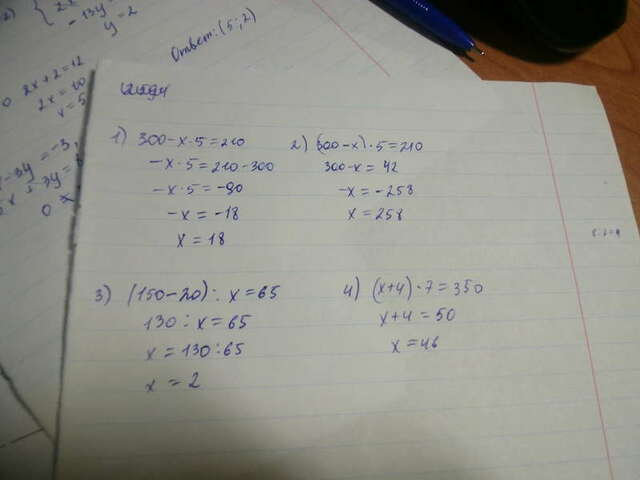 y = 2
Ответ: (5; 2)
2x + 2 = 12
2x = 10
x = 5
1) 300 - x · 5 = 210
- x · 5 = 210 - 300
- x · 5 = -90
- x = -18
x = 18
2) (300 - x) · 5 = 210
300 - x = 42
- x = -258
x = 258
3) (150 - 20) : x = 65
130 : x = 65
x = 130 : 65
x = 2
4) (x + 4) · 7 = 350
x + 4 = 50
x = 46